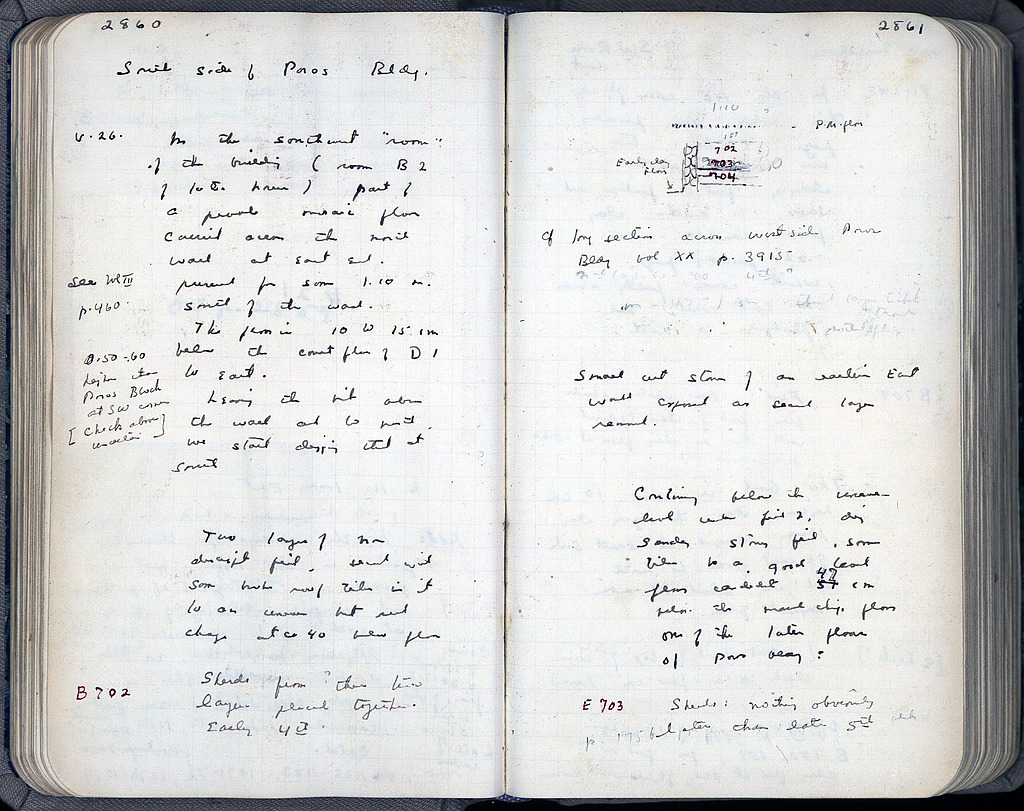 2860
South side of Poros Bldg.
V.26. In the southwest "room"
of the building (room B 2
of later house) part of
a pebble mosaic floor
carried across the north
wall at east end.
See vol III
p. 460.
present for some 1.10 m.
south of the wall.
The floor is 10 to 15 cm
below the court floor of D 1
to East.
0.50-.60
higher than
Poros Block
at SW corner
[check above
Leaving the bit above
the wall and to north,
we start digging that at
south
Two layers of
fill, second with
some broken roof tiles in it
to an uneven but real
change at ca 40 below floor
B 702
Sherds from these two
layers placed together.
Early 4th
2861
1.10
P.M. floor
1st
702
703
704
Early clay
floor
cf long section across west side Poros
Bldg vol XX p. 3915
Small cut stone of an earlier East
wall exposed as second layer
removed.
Continuing below the uneven
level under fill 2, dig
sandy stony fill, some
tiles to a good hard
floor 47
51 cm
below the marble chip floor
one of the later floors
of Poros Bldg?
E 703 Sherds: nothing obviously
later than late 5th